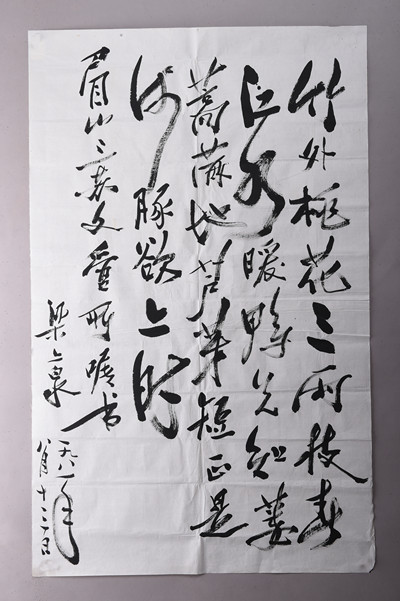 竹外桃花三两枝春
江水暖鸭先知蒌
蒿满地芦芽短正是
河豚欲上时
眉山三苏文管所嘱书
梁上泉
一九八一年
八月十二日